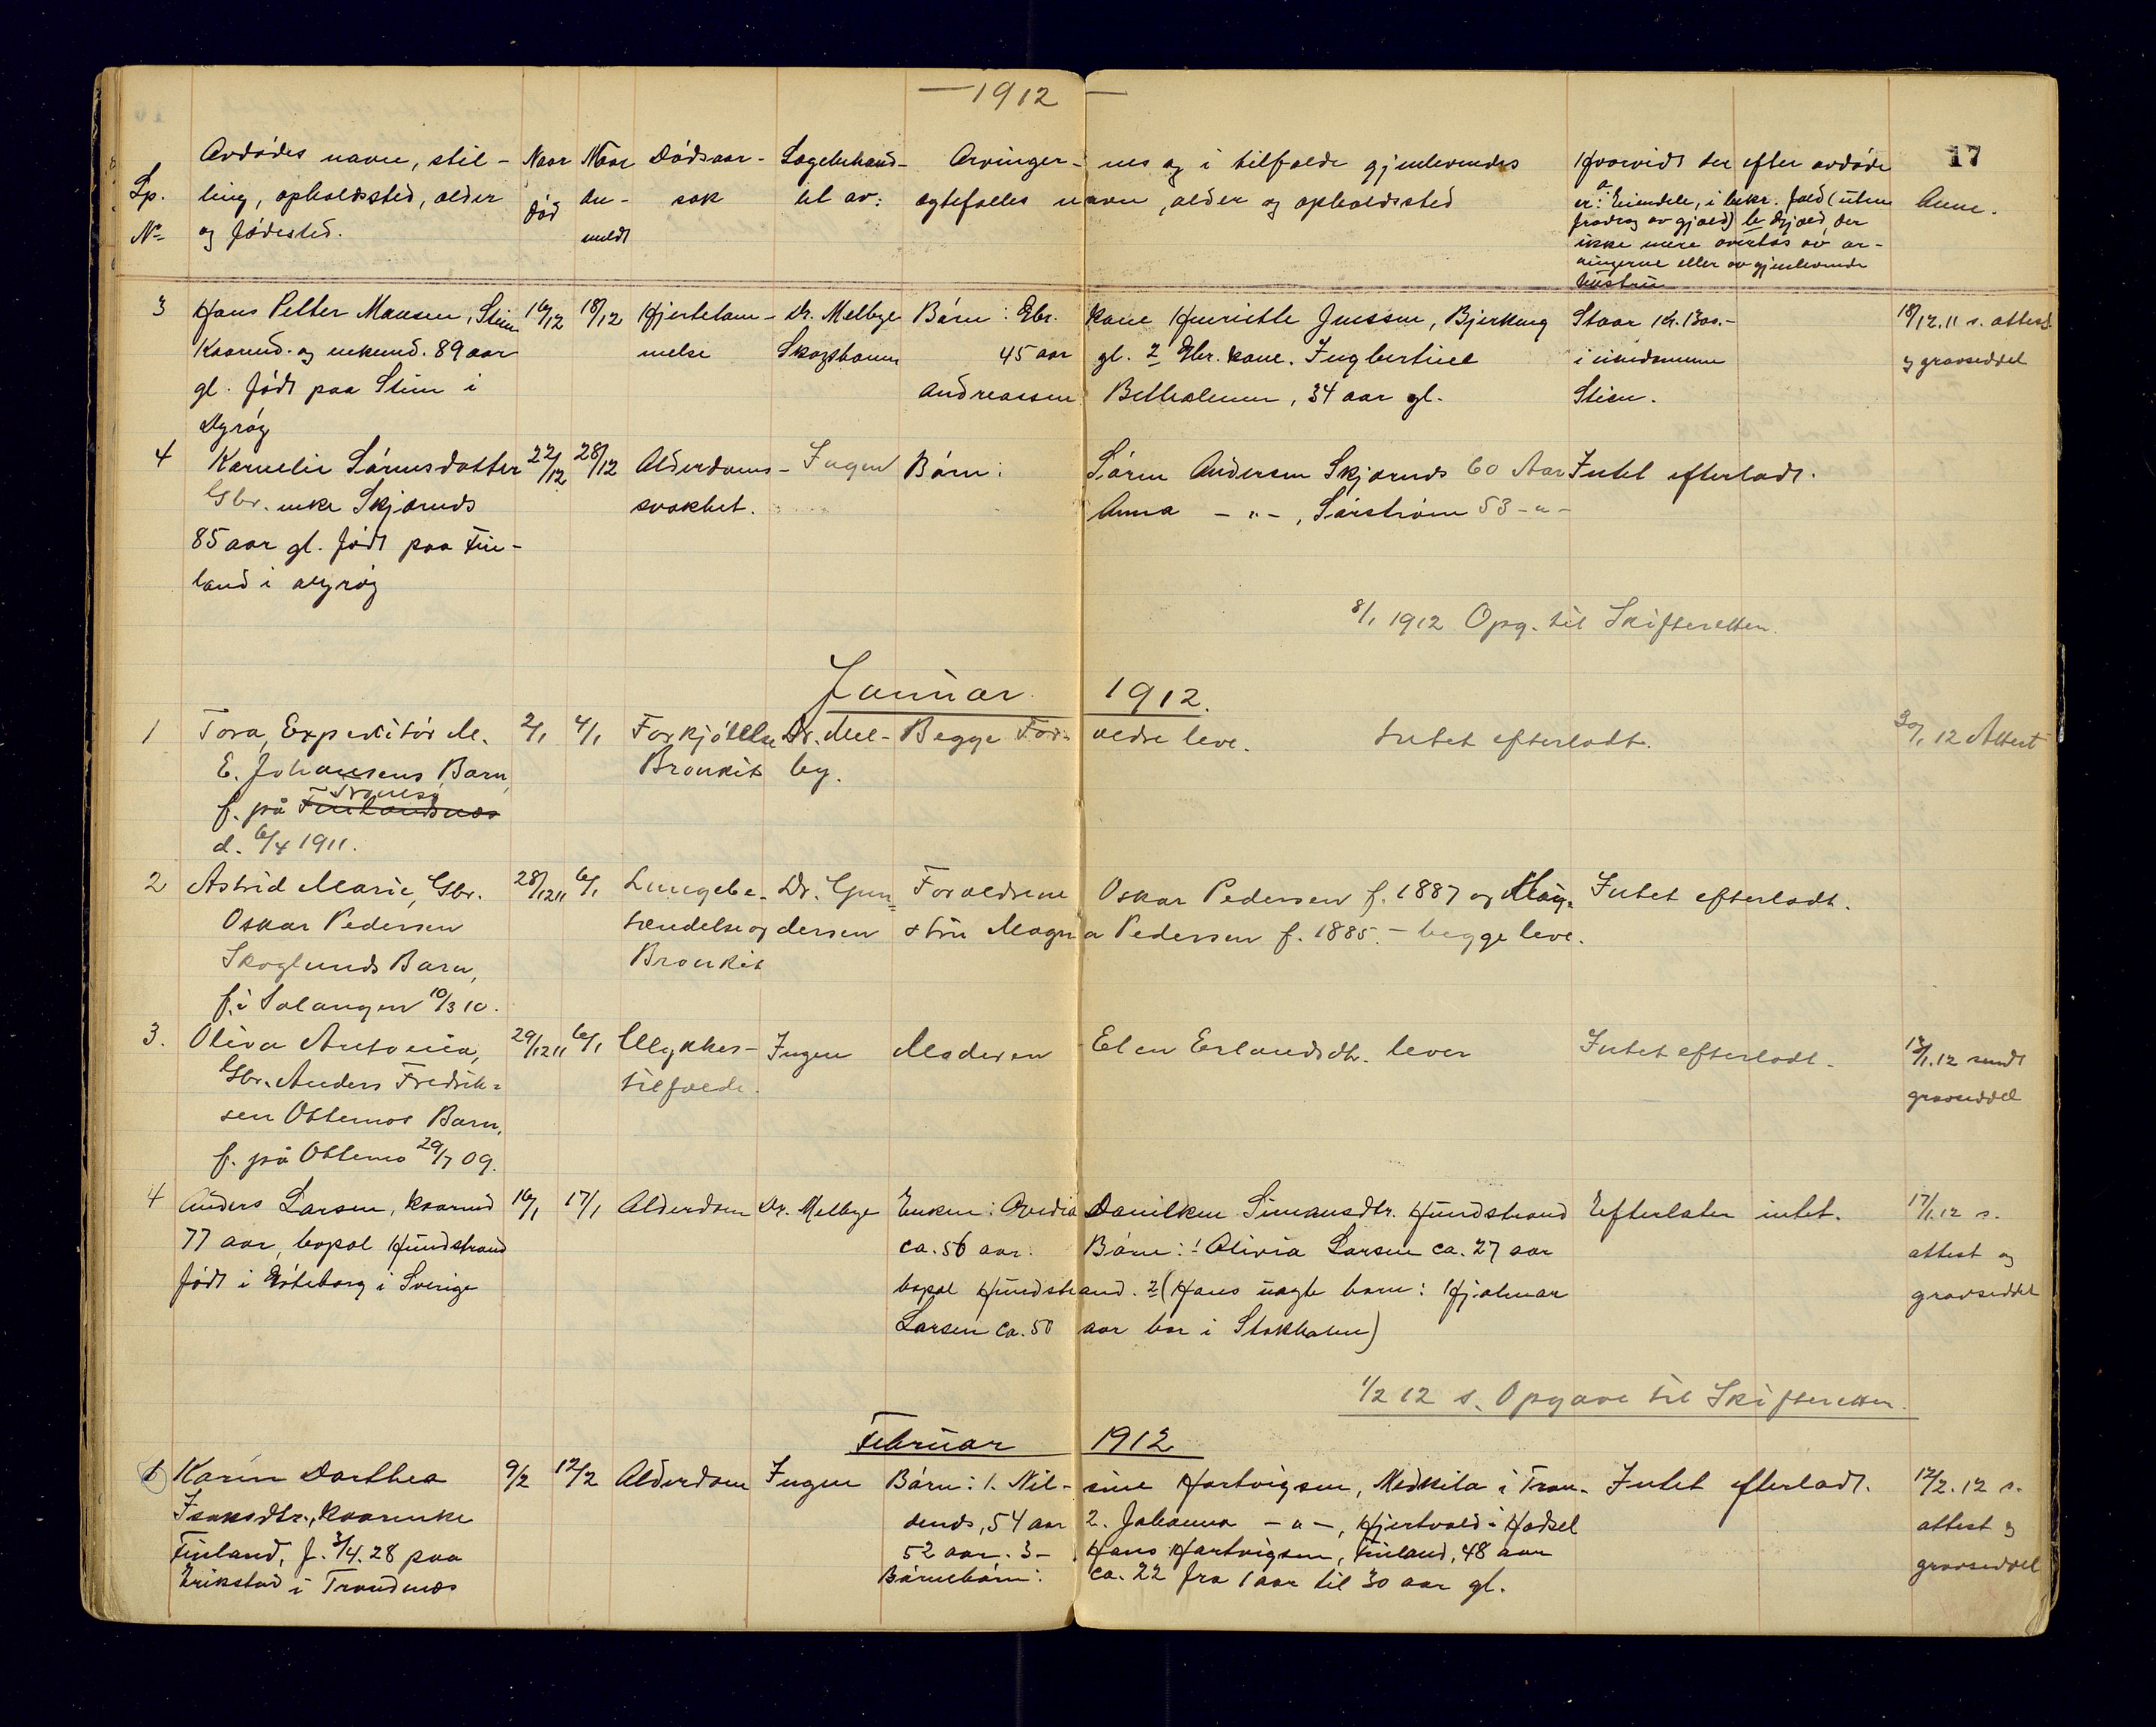 — 1912 —
17
Lp. No Avdødes navn, stilling, opholdssted, alder og fødested. Naar død Naar anmeldt Dødsaarsak Lægebehandlet av: Arvingernes og i tilfælde gjenlevendes ægtefælles navn, alder og opholdssted Hvorvidt der efter avdøde er: a Eiendele, i bekr. fald (uten fradrag av gjæld) b Gjæld, der ikke mere overtas av arvingerne eller av gjenlevende hustru Anm.
3 Hans Petter Mansen, Stein 16/12 18/12 Hjertelam- Dr. Melbye Børn: Gbr. kone Henriette Jenssen, Bjerkeng Staar Kr. 1300.- 18/12.11 s. attest
Kaarmd. og enkemd. 89 aar melse Skogshamn 45 aar gl. 2 Gbr. kone. Ingbertine i eiendommen og gravseddel
gl. født paa Stein i Andreassen Bethalemen, 34 aar gl. Stein.
Dyrøy
4 Karnelie Sørensdatter 22/12 28/12 Alderdoms- Ingen Børn: Søren Andersen Skjærnds 60 Aar Intet efterladt.
Gbr. enke Skjærnds svakhet. Anna -"-, Sørstrøm 53 -"-
85 aar gl. født paa Fin-
land i Dyrøy
8/1 1912 Opg. til Skifteretten.
Januar 1912.
1 Tora, Expeditør M. 2/1 4/1 Forkjølelse Dr. Mel- Begge For- ældre leve. Intet efterladt. 30/1 12 Attest
E. Johansens Barn, Bronkit by.
f. på Finlandsnæs Tromsø
d. 6/4 1911.
2 Astrid Marie, Gbr. 28/12 11 6/1 Lungebe- Dr. Gun= Forældrene Oskar Pedersen f. 1887 og Intet efterladt.
Oskar Pedersen tændelse og dersen Hustru Magna Pedersen f. 1885. - begge leve.
Skoglunds Barn, Bronkit
f. i Salangen 10/3 10.
3. Oliva Antonia, 29/12 11 6/1 Ulykkes- Ingen Moderen Elen Erlandsdtr. lever Intet efterladt. 13/1.12 sendt
Gbr. Anders Fredrik= tilfælde. gravseddel
sen Ottemos Barn,
f. på Ottemo 29/7 09.
4 Anders Larsen, kaarmd 16/1 17/1 Alderdom Dr. Melbye Enken: Ovedia Danilken Simensdtr. Hundstrand Efterlater intet. 17/1.12 s.
77 aar, bopæl Hundstrand ca. 56 aar: Børn: 1 Olivia Larsen ca. 27 aar attest og
født i Gøteborg i Sverige bopæl Hundstrand. 2 (Hans uægte barn: Hjalmar gravseddel
Larsen ca. 50 aar bor i Stokholm)
1/2 12 s. Opgave til Skifteretten.
Februar 1912
1 Karen Dorthea 9/2 12/2 Alderdom Ingen Børn: 1. Nil- sine Hartvigsen, Medkila i Tron- Intet efterladt. 12/2.12 s.
Isaksdtr., kaarenke denæs, 54 aar 2. Johanna -"-, Hjertvold i Hadsel attest og
Finland, f. 3/4. 28 paa 52 aar. 3- Hans Hartvigsen, Finland, 48 aar gravseddel
Erikstad i Trondnæs Børnebørn: ca. 22 fra 1 aar til 30 aar gl.